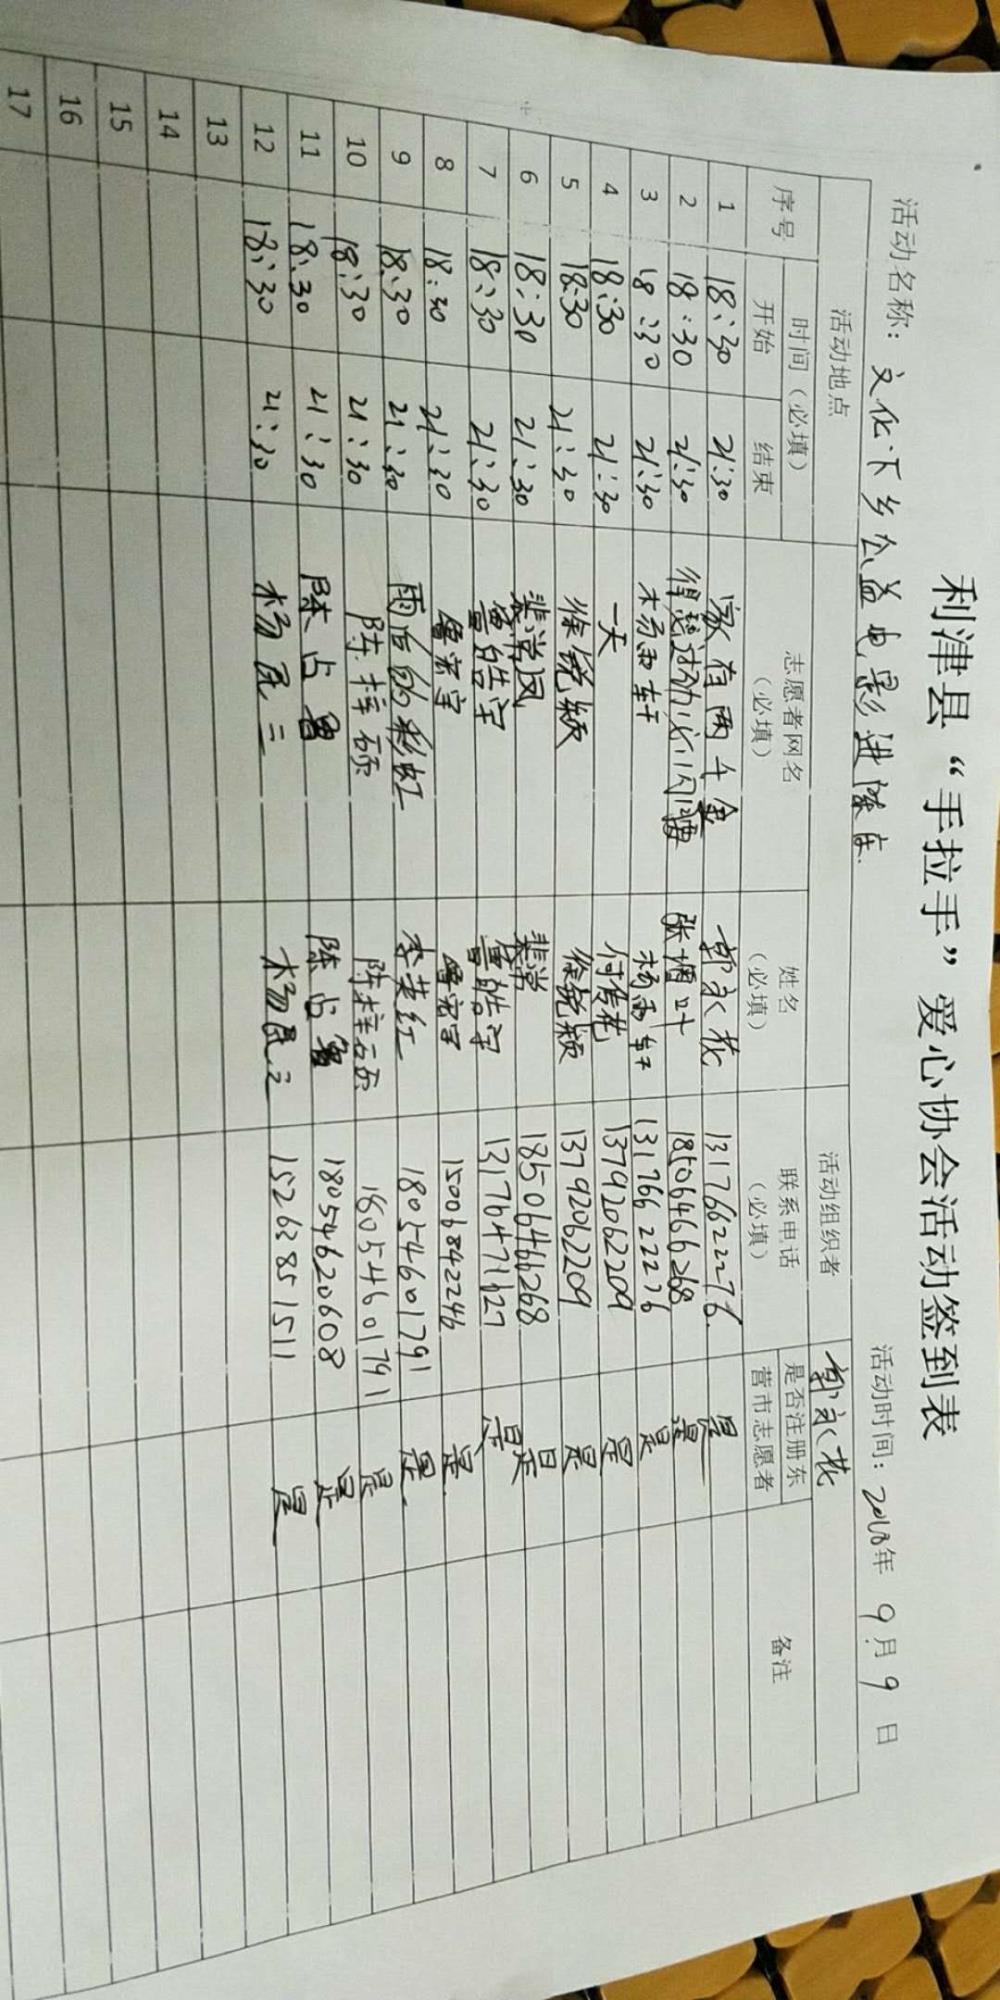 利津县“手拉手”爱心协会活动签到表
活动名称：文化下乡公益电影进陈庄 活动时间：2018年9月9日
活动地点 活动组织者 郭永花
序号 时间（必填） 志愿者网名（必填） 姓名（必填） 联系电话（必填） 是否注册东营市志愿者 备注
开始 结束
1 18:30 21:30 家有两千金 郭永花 13176622276 是
2 18:30 21:30 张增叶 18506466268 是
3 18:30 21:30 杨雨轩 杨雨轩 13176622276 是
4 18:30 21:30 一天 付信花 13792062209 是
5 18:30 21:30 徐锐颖 徐锐颖 13792062209 是
6 18:30 21:30 18506466268 是
7 18:30 21:30 13176471627 是
8 18:30 21:30 15006842246 是
9 18:30 21:30 雨后的彩虹 李英红 18054601791 是
10 18:30 21:30 陈梓硕 陈梓硕 18054601791 是
11 18:30 21:30 陈占 陈占 18054620608 是
12 18:30 21:30 15263851511 是
13
14
15
16
17